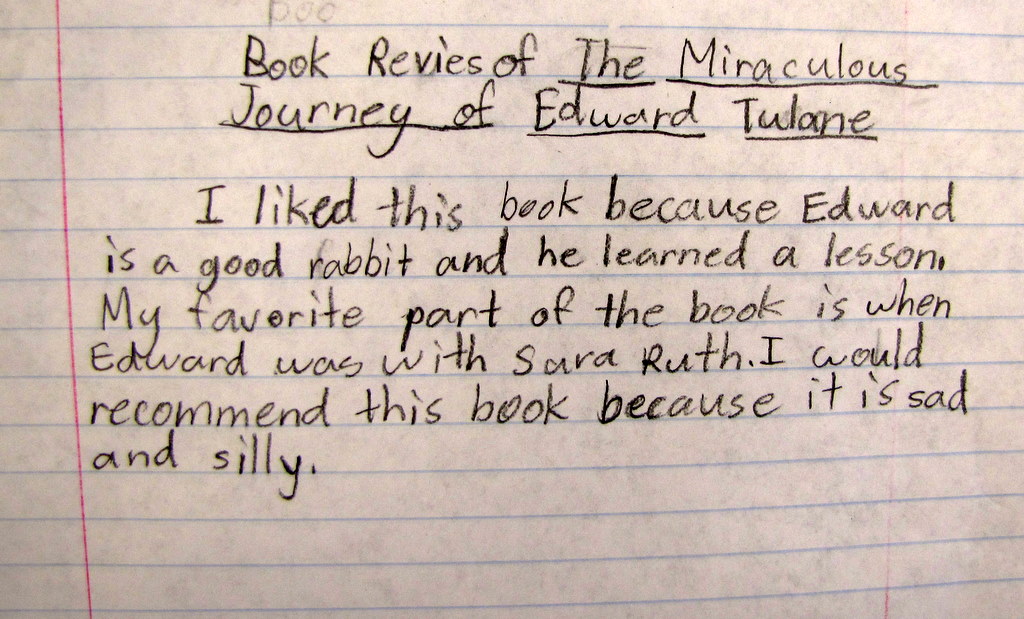 boo
Book Revies of The Miraculous
Journey of Edward Tulane
I liked this book because Edward
is a good rabbit and he learned a lesson.
My favorite part of the book is when
Edward was with Sara Ruth. I would
recommend this book because it is sad
and silly.